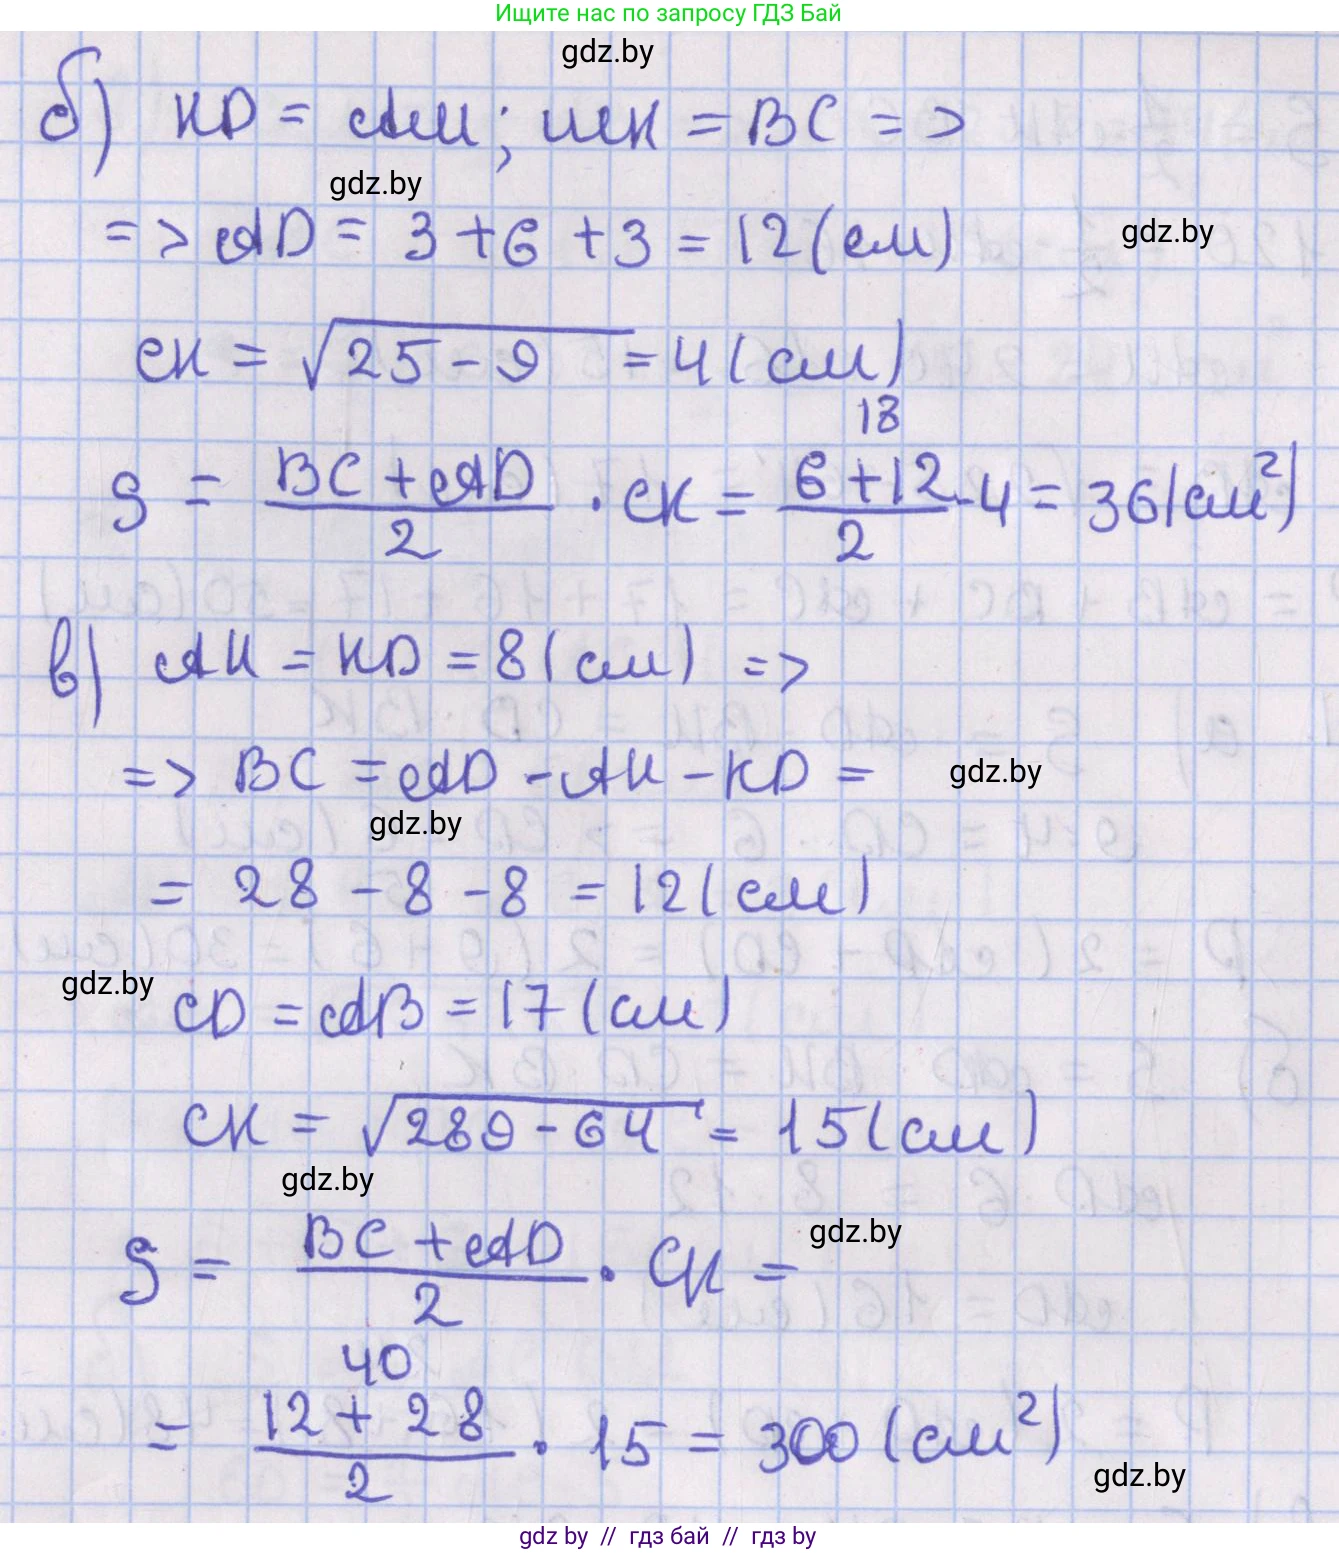 Ищите нас по запросу ГДЗ Бай
gdz.by
б) KD = AM; MK = BC =>
gdz.by
=> AD = 3 + 6 + 3 = 12 (см)
gdz.by
CK = √25 - 9 = 4 (см)
18
S = (BC + AD)/2 · CK = (6 + 12)/2 · 4 = 36 (см²)
в) AH = KD = 8 (см) =>
=> BC = AD - AH - KD =
gdz.by
gdz.by
= 28 - 8 - 8 = 12 (см)
gdz.by
CD = AB = 17 (см)
CK = √289 - 64 = 15 (см)
gdz.by
gdz.by
S = (BC + AD)/2 · CK =
40
= (12 + 28)/2 · 15 = 300 (см²)
gdz.by
gdz by // гдз бай // гдз by